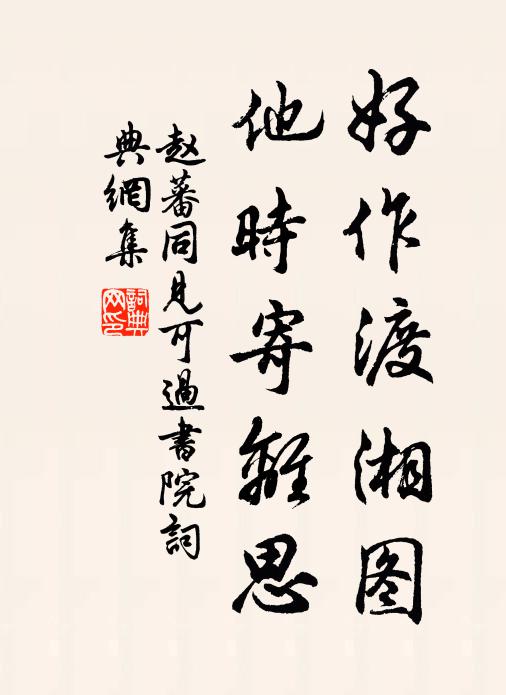 好作渡湘图
他時寄離思
赵蕃同見可過書院詞
典網集
詞典
网印